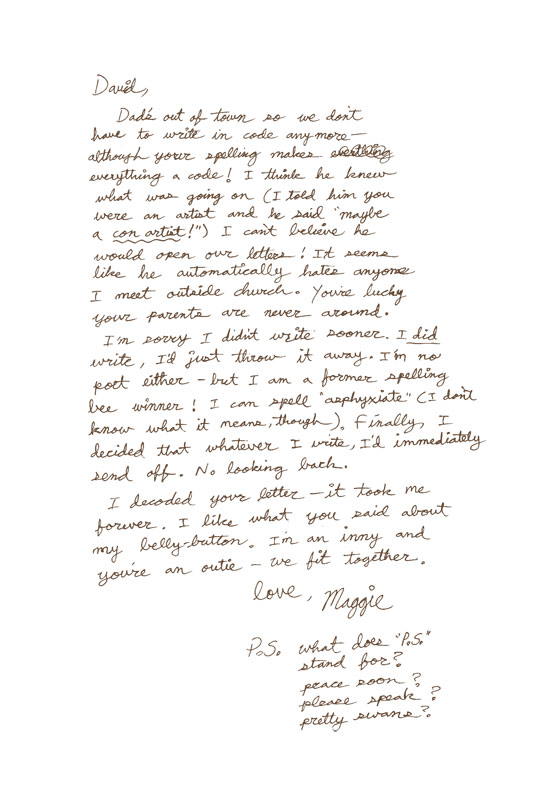 David,
Dad's out of town so we don't
have to write in code anymore—
although your spelling makes everthing
everything a code! I think he knew
what was going on (I told him you
were an artist and he said "maybe
a con artist!") I can't believe he
would open our letters! It seems
like he automatically hates anyone
I meet outside church. You're lucky
your parents are never around.
I'm sorry I didn't write sooner. I did
write, I'd just throw it away. I'm no
poet either - but I am a former spelling
bee winner! I can spell "asphyxiate" (I don't
know what it means, though). Finally, I
decided that whatever I write, I'd immediately
send off. No looking back.
I decoded your letter - it took me
forever. I like what you said about
my belly-button. I'm an inny and
you're an outie - we fit together.
love, Maggie
P.S. what does "P.S."
stand for?
peace soon?
please speak?
pretty swans?